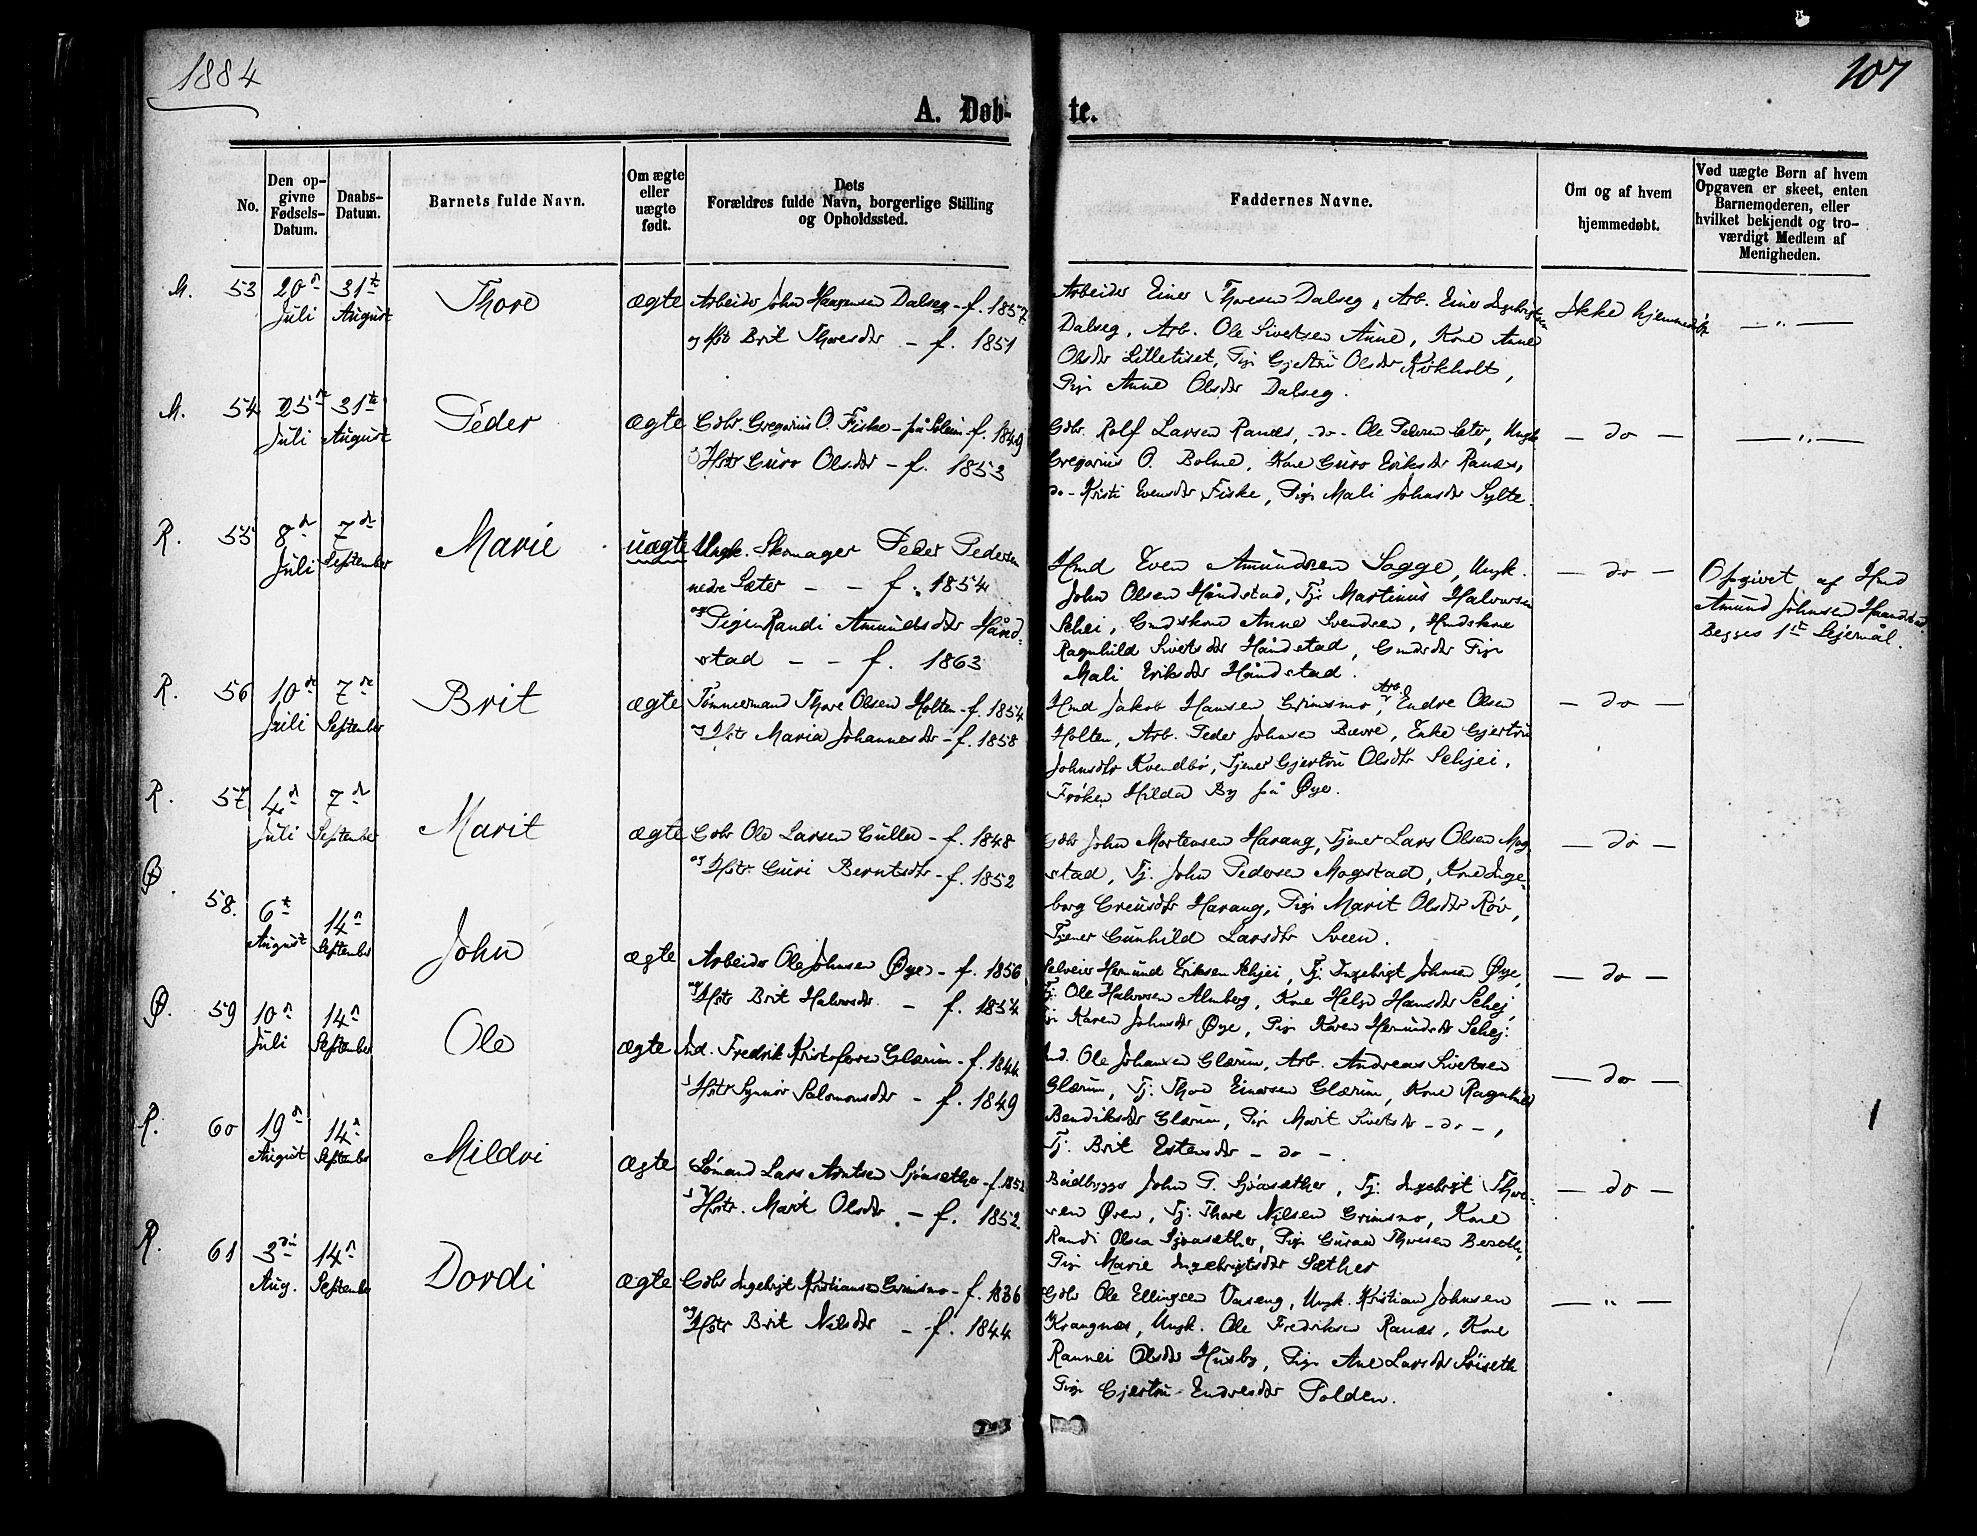 1884
107
A. Døb-
te.
No.
Den op-
givne
Fødsels-
Datum.
Daabs-
Datum.
Barnets fulde Navn.
Om ægte
eller
uægte
født.
Dets
Forældres fulde Navn, borgerlige Stilling
og Opholdssted.
Faddernes Navne.
Om og af hvem
hjemmedøbt.
Ved uægte Børn af hvem
Opgaven er skeet, enten
Barnemoderen, eller
hvilket bekjendt og tro-
værdigt Medlem af
Menigheden.
M. 53 20de Juli 31te August Thore ægte
Arbeider John Haagensen Dalseg - f. 1857
og Hstr Brit Thoresdtr - f. 1851
Arbeider Einer Thoresen Dalseg, Arb. Einer Ingebrigtsen
Dalseg, Arb. Ole Sivertsen Aune, Kone Anne
Olsdtr Litletiset, Pige Gjertru Olsdtr Kirkholt,
Pige Anne Olsdtr Dalseg.
Ikke hjemmedøbt
— „ —
M. 54 25de Juli 31te August Peder ægte
Gdbr. Gregorius O. Fiske - på Solem - f. 1849
og Hstr Guro Olsdtr - f. 1853
Gdbr. Rolf Larsen Ranæs, - do - Ole Pedersen Sæter, Ungk.
Gregorius O. Bolme, Kone Guro Eriksdtr Ranæs,
do - Kristi Evensdtr Fiske, Pige Mali Johnsdtr Sylte.
— do —
— „ —
R. 55 8de Juli 7de September Marie uægte
Ungk. Skomager Peder Pedersen
nedre Sæter - - f. 1854
og Pigen Randi Amundsdtr Hånd-
stad - - f. 1863
Hmd Even Amundsen Sogge, Ungk.
John Olsen Håndstad, Tj. Martinus Halvorsen
Schei, Gmdskone Anne Svendsen, Hmdskone
Ragnhild Sivertsdtr Håndstad, Gmdsdtr Pige
Mali Eriksdtr Håndstad.
— do —
Opgivet af Hmd
Amund Johnsen Haandstad.
Begges 1ste Lejermål.
R. 56 10de Juli 7de September Brit ægte
Tømmermand Thore Olsen Holten - f. 1854
og Hstr Maria Johannesdtr - f. 1858
Hmd Jakob Hansen Grimsmo, Arb. Endre Olsen
Holten, Arb. Peder Johnsen Bævre, Enke Gjertru
Johnsdtr Kvendbø, Tjener Gjertru Olsdtr Schjei,
Frøken Hilda By på Øye.
— do —
R. 57 4de Juli 7de September Marit ægte
Gdbr Ole Larsen Gulla - f. 1848
og Hstr. Guri Berntsdtr - f. 1852
Gdbr John Mortensen Harang, Tjener Lars Olsen Mog-
stad, Tj. John Pedersen Mogstad, Kone Inge-
borg Greusdtr Harang, Pige Marit Olsdtr Røv,
Tjener Gunhild Larsdtr Sveen.
— do —
Ø. 58. 6te August 14de September John ægte
Arbeider Ole Johnsen Øye - f. 1856
og Hstr Brit Halvorsdtr. - f. 1854
Selveier Hermund Eriksen Schjei, Tj. Ingebrigt Johnsen Øye,
Tj. Ole Halvorsen Almberg, Kone Helge Hansdtr Schej,
Pige Karen Johnsdtr Øye, Pige Karen Hermundsdtr Schej.
— do —
Ø. 59 10de Juli 14de September Ole ægte
Ind. Fredrik Kristofersen Glærum - f. 1844
og Hstr Synnør Salomonsdtr - f. 1849
Ind. Ole Johansen Glærum, Arb. Andreas Sivertsen
Glærum, Tj. Thore Einarsen Glærum, Kone Ragnhild
Bendiksdtr Glærum, Pige Marit Sivertsdtr - do -,
Tj. Brit Estensdtr - do -.
— do —
R. 60 19de August 14de September Mildri ægte
Sømand Lars Arntsen Sjøasæther - f. 1852
og Hstr. Marit Olsdtr. - f. 1852
Bådbygger John P. Sjøasæther, Tj. Ingebrigt Thore-
sen Øren, Tj. Thore Nilsen Grimsmo, Kone
Randi Olsen Sjøasæther, Pige Guraa Thoresen
Pige Marie Ingebrigtsdtr Sæther
— do —
R. 61 3die Aug. 14de September Dordi ægte
Gdbr Ingebrigt Kristiansen Grimsmo - f. 1836
og Hstr Brit Nilsdtr - f. 1844
Gdbr Ole Ellingsen Vaseng, Ungk. Kristian Johnsen
Krangnæs, Ungk. Ole Fredriksen Ranæs, Kone
Rannei Olsdtr Husby, Pige Ane Larsdtr Sæiseth
Pige Gjertru Endresdtr Polden.
— „ —